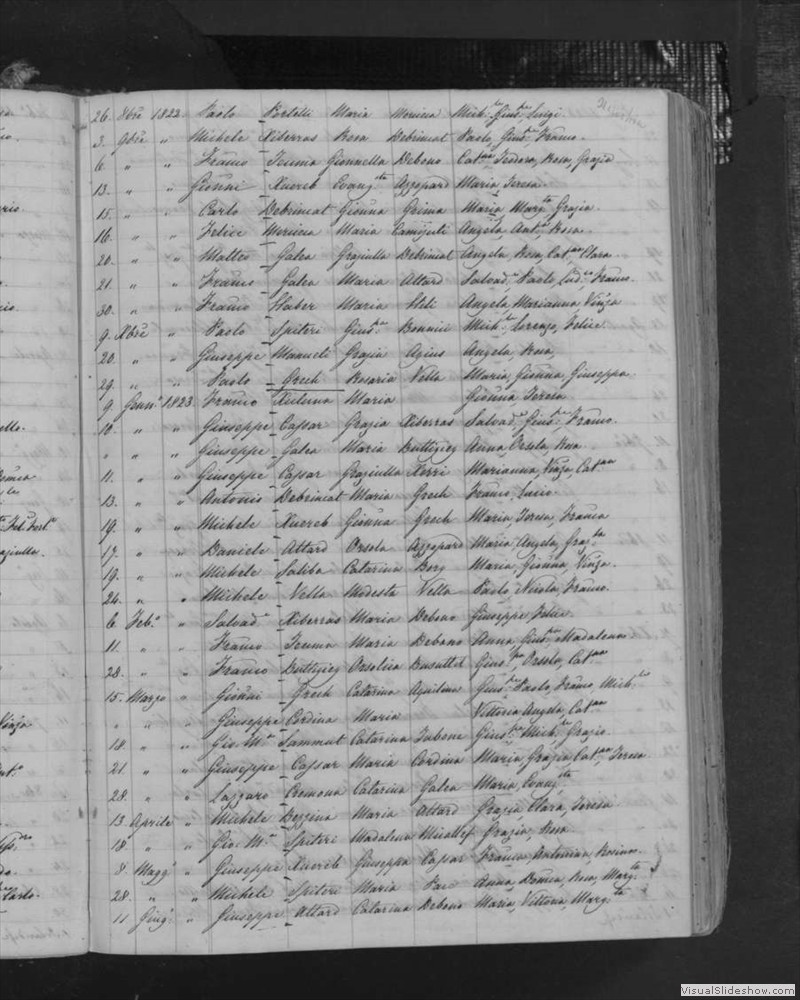 26. 8bre 1822 Paolo Portelli Maria Mich.le Gius.a Luigi
3. 9bre " Michele Xiberras Rosa Debrincat Paolo, Gius.a Franco.
6. " " Franco Teuma Gionnella Debono Cat.na Teodora, Rosa, Grazia
13. " " Gionni Xuereb Evang.ta Azzopard Maria Teresa.
15. " " Carlo Debrincat Gionna Grima Maria Marg.ta Grazia.
16. " " Felice Maria Camijuli Angela, Ant.a Rosa.
20. " " Matteo Galea Graziulla Debrincat Angela, Rosa, Cat.na Clara.
21. " " Franco Galea Maria Attard Salvad.e Paolo, Lud.co Franco.
30. " " Franco Haber Maria Angela, Marianna, Vinza
9. Xbre " Paolo Spiteri Gius.pa Bonnici Mich.le Lorenzo, Felice.
20. " " Giuseppe Manueli Grazia Agius Angela, Rosa,
29. " " Paolo Grech Rosaria Vella Maria, Gionna, Giuseppa
9. Genn.o 1823. Franco Xuluma Maria Gionna Teresa
10. " " Giuseppe Cassar Grazia Xiberras Salvad.e Gius.e Franco.
" " " Giuseppe Galea Maria Buttigieg Anna, Orsola, Rosa.
11. " " Giuseppe Cassar Graziulla Xerri Marianna, Vinza, Cat.na
13. " " Antonio Debrincat Maria Grech Franco, Lucio.
19. " " Michele Xuereb Gionna Grech Maria, Teresa, Franca
17. " " Daniele Attard Orsola Azzopard Maria Angela, Graz.a
19. " " Michele Saliba Catarina Borg Maria, Gionna, Vinza.
24. " " Michele Vella Modesta Vella Paolo, Nicola, Franco.
6. Feb.o " Salvad.e Xiberras Maria Debono Giuseppe, Felice.
11. " " Franco Teuma Maria Debono Anna, Gius.a Madalena
28. " " Franco Buttigieg Orsolica Busuttil Gius.pa Orsola, Cat.na
15. Marzo " Gionni Grech Catarina Aquilina Gius.e Paolo, Franco, Mich.le
" " " Giuseppe Cordina Maria Vittoria Angela, Cat.na
18. " " Gio M.a Sammut Catarina Tabone Gius.e Mich.le Grazio.
21. " " Giuseppe Cassar Maria Cordina Maria, Grazia, Cat.na Teresa.
28. " " Lazzaro Cremona Catarina Galea Maria, Evang.ta
13 Aprile " Michele Bezzina Maria Attard Grazia, Clara, Teresa.
18 " " Gio: M.a Spiteri Madalena Micallef Grazia, Rosa.
8. Magg.o " Giuseppe Xuereb Giuseppa Cassar Franca, Antonia, Rosina.
28. " " Michele Spiteri Maria Pace Anna, Domca, Rosa, Marg.ta
11. Giug.o " Giuseppe Attard Catarina Debono Maria, Vittoria, Marg.ta
VisualSlideshow.com